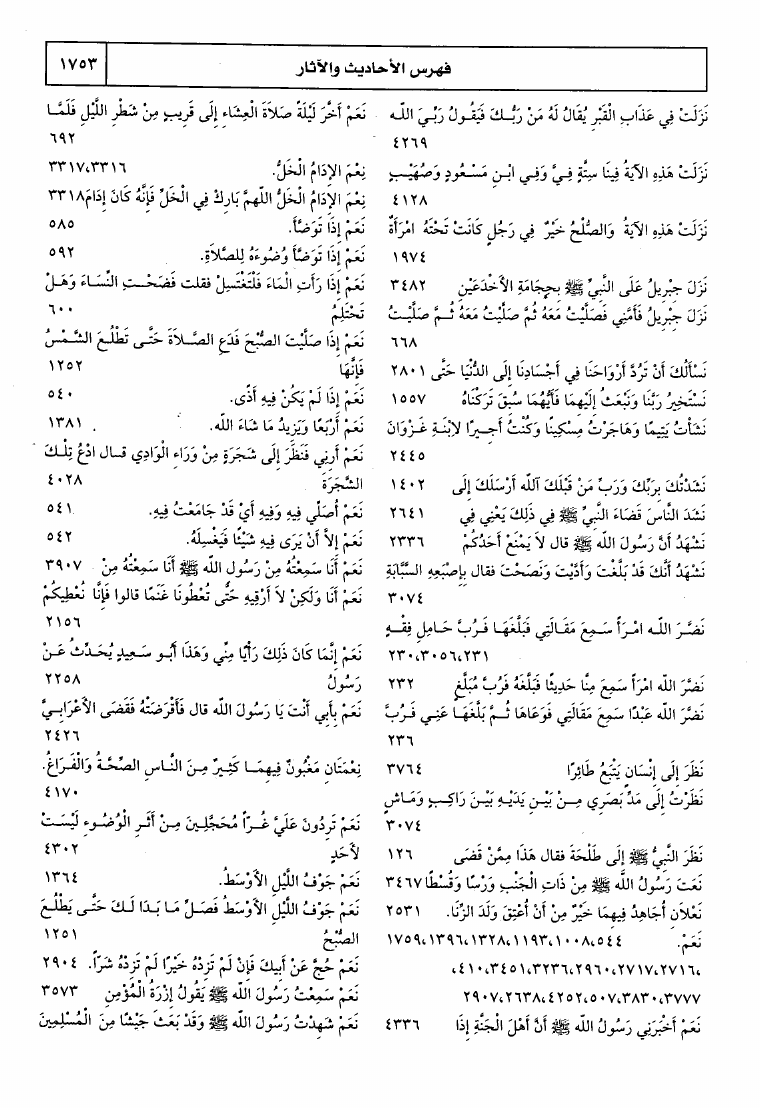 فهرس الأحاديث والآثار
١٧٥٣
نَزَلَتْ فِي عَذَابِ الْقَبْرِ يُقَالُ لَهُ مَنْ رَبُّكَ فَيَقُولُ رَبِّيَ اللَّه
٤٢٦٩
نَزَلَتْ هَذِهِ الآيَةُ فِينَا سِتَّةٍ فِيَّ وَفِي ابْنِ مَسْعُودٍ وَصُهَيْبٍ
٤١٢٨
نَزَلَتْ هَذِهِ الآيَةُ وَالصُّلْحُ خَيْرٌ فِي رَجُلٍ كَانَتْ تَحْتَهُ امْرَأَةٌ
١٩٧٤
نَزَلَ جِبْرِيلُ عَلَى النَّبِيِّ ﷺ بِحِجَامَةِ الأَخْدَعَيْنِ ٣٤٨٢
نَزَلَ جِبْرِيلُ فَأَمَّنِي فَصَلَّيْتُ مَعَهُ ثُمَّ صَلَّيْتُ مَعَهُ ثُمَّ صَلَّيْتُ
٦٦٨
نَسْأَلُكَ أَنْ تَرُدَّ أَرْوَاحَنَا فِي أَجْسَادِنَا إِلَى الدُّنْيَا حَتَّى ٢٨٠١
نَسْتَخِيرُ رَبَّنَا وَنَبْعَثُ إِلَيْهِمَا فَأَيُّهُمَا سُبِقَ تَرَكْنَاهُ ١٥٥٧
نَشَأْتُ يَتِيمًا وَهَاجَرْتُ مِسْكِينًا وَكُنْتُ أَجِيرًا لاِبْنَةِ غَزْوَانَ
٢٤٤٥
نَشَدْتُكَ بِرَبِّكَ وَرَبِّ مَنْ قَبْلَكَ آللَّه أَرْسَلَكَ إِلَى ١٤٠٢
نَشَدَ النَّاسَ قَضَاءَ النَّبِيِّ ﷺ فِي ذَلِكَ يَعْنِي فِي ٢٦٤١
نَشْهَدُ أَنَّ رَسُولَ اللَّه ﷺ قال لاَ يَمْنَعْ أَحَدُكُمْ ٢٣٣٦
نَشْهَدُ أَنَّكَ قَدْ بَلَّغْتَ وَأَدَّيْتَ وَنَصَحْتَ فقال بِإِصْبَعِهِ السَّبَّابَةِ
٣٠٧٤
نَضَّرَ اللَّه امْرَأً سَمِعَ مَقَالَتِي فَبَلَّغَهَا فَرُبَّ حَامِلِ فِقْهٍ
٢٣٠،٣٠٥٦،٢٣١
نَضَّرَ اللَّه امْرَأً سَمِعَ مِنَّا حَدِيثًا فَبَلَّغَهُ فَرُبَّ مُبَلَّغٍ ٢٣٢
نَضَّرَ اللَّه عَبْدًا سَمِعَ مَقَالَتِي فَوَعَاهَا ثُمَّ بَلَّغَهَا عَنِي فَرُبَّ
٢٣٦
نَظَرَ إِلَى إِنْسَانٍ يَتْبَعُ طَائِرًا ٣٧٦٤
نَظَرْتُ إِلَى مَدِّ بَصَرِي مِنْ بَيْنِ يَدَيْهِ بَيْنَ رَاكِبٍ وَمَاشٍ
٣٠٧٤
نَظَرَ النَّبِيُّ ﷺ إِلَى طَلْحَةَ فقال هَذَا مِمَّنْ قَضَى ١٢٦
نَعَتَ رَسُولُ اللَّه ﷺ مِنْ ذَاتِ الْجَنْبِ وَرْسًا وَقُسْطًا ٣٤٦٧
نَعْلاَنِ أُجَاهِدُ فِيهِمَا خَيْرٌ مِنْ أَنْ أُعْتِقَ وَلَدَ الزِّنَا. ٢٥٣١
نَعَمْ. ١٧٥٩،١٣٩٦،١٣٢٨،١١٩٣،١٠٠٨،٥٤٤
،٤١٠،٣٤٥١،٣٢٣٦،٢٩٦٠،٢٧١٧،٢٧١٦،
٢٩٠٧،٢٦٣٨،٤٢٥٢،٥٠٧،٣٨٣٠،٣٧٧٧
نَعَمْ أَخْبَرَنِي رَسُولُ اللَّه ﷺ أَنَّ أَهْلَ الْجَنَّةِ إِذَا ٤٣٣٦
نَعَمْ أَخَّرَ لَيْلَةً صَلاَةَ الْعِشَاءِ إِلَى قَرِيبٍ مِنْ شَطْرِ اللَّيْلِ فَلَمَّا
٦٩٢
نِعْمَ الإِدَامُ الْخَلُّ. ٣٣١٧،٣٣١٦
نِعْمَ الإِدَامُ الْخَلُّ اللَّهمَّ بَارِكْ فِي الْخَلِّ فَإِنَّهُ كَانَ إِدَامَ ٣٣١٨
نَعَمْ إِذَا تَوَضَّأَ. ٥٨٥
نَعَمْ إِذَا تَوَضَّأَ وُضُوءَهُ لِلصَّلاَةِ. ٥٩٢
نَعَمْ إِذَا رَأَتِ الْمَاءَ فَلْتَغْتَسِلْ فقلت فَضَحْتِ النِّسَاءَ وَهَلْ
تَحْتَلِمُ ٦٠٠
نَعَمْ إِذَا صَلَّيْتَ الصُّبْحَ فَدَعِ الصَّلاَةَ حَتَّى تَطْلُعَ الشَّمْسُ
فَإِنَّهَا ١٢٥٢
نَعَمْ إِذَا لَمْ يَكُنْ فِيهِ أَذًى. ٥٤٠
نَعَمْ أَرْبَعًا وَيَزِيدُ مَا شَاءَ اللَّه. ١٣٨١
نَعَمْ أَرِنِي فَنَظَرَ إِلَى شَجَرَةٍ مِنْ وَرَاءِ الْوَادِي قال ادْعُ تِلْكَ
الشَّجَرَةَ ٤٠٢٨
نَعَمْ أُصَلِّي فِيهِ وَفِيهِ أَيْ قَدْ جَامَعْتُ فِيهِ. ٥٤١
نَعَمْ إِلاَّ أَنْ يَرَى فِيهِ شَيْئًا فَيَغْسِلَهُ. ٥٤٢
نَعَمْ أَنَا سَمِعْتُهُ مِنْ رَسُولِ اللَّه ﷺ أَنَا سَمِعْتُهُ مِنْ ٣٩٠٧
نَعَمْ أَنَا وَلَكِنْ لاَ أَرْقِيهِ حَتَّى تُعْطُونَا غَنَمًا قالوا فَإِنَّا نُعْطِيكُمْ
٢١٥٦
نَعَمْ إِنَّمَا كَانَ ذَلِكَ رَأْيًا مِنِّي وَهَذَا أَبُو سَعِيدٍ يُحَدِّثُ عَنْ
رَسُولُ ٢٢٥٨
نَعَمْ بِأَبِي أَنْتَ يَا رَسُولَ اللَّه قال فَأَقْرَضَتْهُ فَقَضَى الأَعْرَابِيَّ
٢٤٢٦
نِعْمَتَانِ مَغْبُونٌ فِيهِمَا كَثِيرٌ مِنَ النَّاسِ الصِّحَّةُ وَالْفَرَاغُ.
٤١٧٠
نَعَمْ تَرِدُونَ عَلَيَّ غُرًّا مُحَجَّلِينَ مِنْ أَثَرِ الْوُضُوءِ لَيْسَتْ
لأَحَدٍ ٤٣٠٢
نَعَمْ جَوْفُ اللَّيْلِ الأَوْسَطُ. ١٣٦٤
نَعَمْ جَوْفُ اللَّيْلِ الأَوْسَطُ فَصَلِّ مَا بَدَا لَكَ حَتَّى يَطْلُعَ
الصُّبْحُ ١٢٥١
نَعَمْ حُجَّ عَنْ أَبِيكَ فَإِنْ لَمْ تَزِدْهُ خَيْرًا لَمْ تَزِدْهُ شَرًّا. ٢٩٠٤
نَعَمْ سَمِعْتُ رَسُولَ اللَّه ﷺ يَقُولُ إِزْرَةُ الْمُؤْمِنِ ٣٥٧٣
نَعَمْ شَهِدْتُ رَسُولَ اللَّه ﷺ وَقَدْ بَعَثَ جَيْشًا مِنَ الْمُسْلِمِينَ